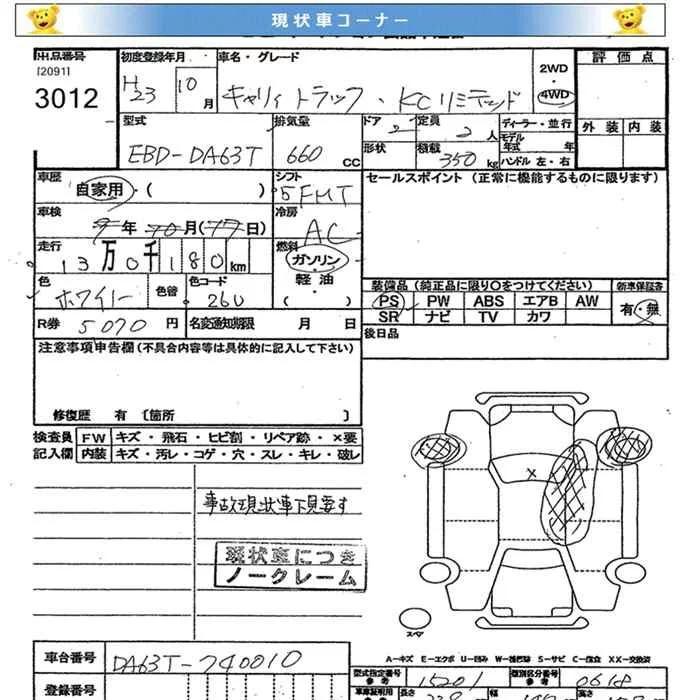 現状車コーナー
出品番号 初度登録年月 車名・グレード 2WD 評価点
[2091] 3012 H23 10月 キャリイトラック・KCリミテッド 4WD
型式 排気量 ドア 2 定員 2人 ディーラー・並行 外装 内装
EBD-DA63T 660cc 形状 積載 350kg モデル年式 年
ハンドル 左・右
車歴 自家用・( ) シフト 5FMT セールスポイント (正常に機能するものに限ります)
車検 年10月( 日) 冷房 AC
走行 13万0千180km 燃料 ガソリン・軽油・( )
装備品(純正品に限り○をつけてください) 新車保証書
色 ホワイト 色替 色コード 26U PS PW ABS エアB AW 有・無
SR ナビ TV カワ
R券 5070円 名変通知期限 月 日 後日品
注意事項申告欄(不具合内容等は具体的に記入して下さい)
修復歴 有 〔箇所 〕
検査員 FW キズ・飛石・ヒビ割・リペア跡・×要
記入欄 内装 キズ・汚レ・コゲ・穴・スレ・キレ・破レ
事故現状車下見要す
現状車につき
ノークレーム
スペア
A-キズ E-エクボ U-凹み W-補修跡 S-サビ C-腐食 XX-交換済
車台番号 DA63T-740010 型式指定番号 参考 15201 類別区分番号 参考 0618
登録番号 車庫証明用 長さ 幅 高さ